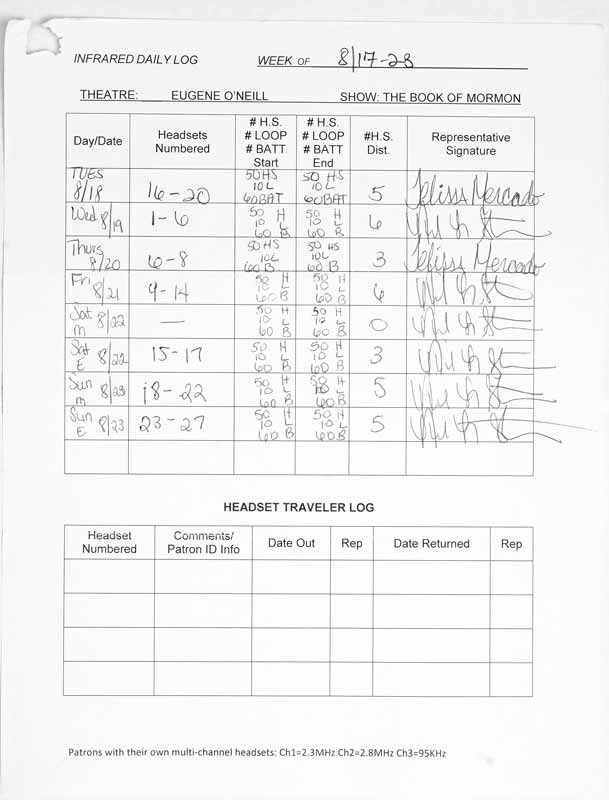 INFRARED DAILY LOG WEEK OF 8/17-23
THEATRE: EUGENE O'NEILL SHOW: THE BOOK OF MORMON
Day/Date Headsets Numbered # H.S. # LOOP # BATT Start # H.S. # LOOP # BATT End #H.S. Dist. Representative Signature
TUES 8/18 16-20 50 HS 10 L 60 BAT 50 HS 10 L 60 BAT 5 Mercado
Wed 8/19 1-6 50 H 10 L 60 B 50 H 10 L 60 B 6
Thurs 8/20 6-8 50 HS 10L 60 B 50 HS 10L 60 B 3 Mercado
Fri 8/21 9-14 50 H 10 L 60 B 50 H 10 L 60 B 6
Sat M 8/22 — 50 H 10 L 60 B 50 H L 60 B 0
Sat E 8/22 15-17 50 H 10 L 60 B 50 H 10 L 60 B 3
Sun M 8/23 18-22 50 H 10 L 60 B 50 H 10 L 60 B 5
Sun E 8/23 23-27 50 H 10 L 60 B 50 H 10 L 60 B 5
HEADSET TRAVELER LOG
Headset Numbered Comments/ Patron ID Info Date Out Rep Date Returned Rep
Patrons with their own multi-channel headsets: Ch1=2.3MHz Ch2=2.8MHz Ch3=95KHz